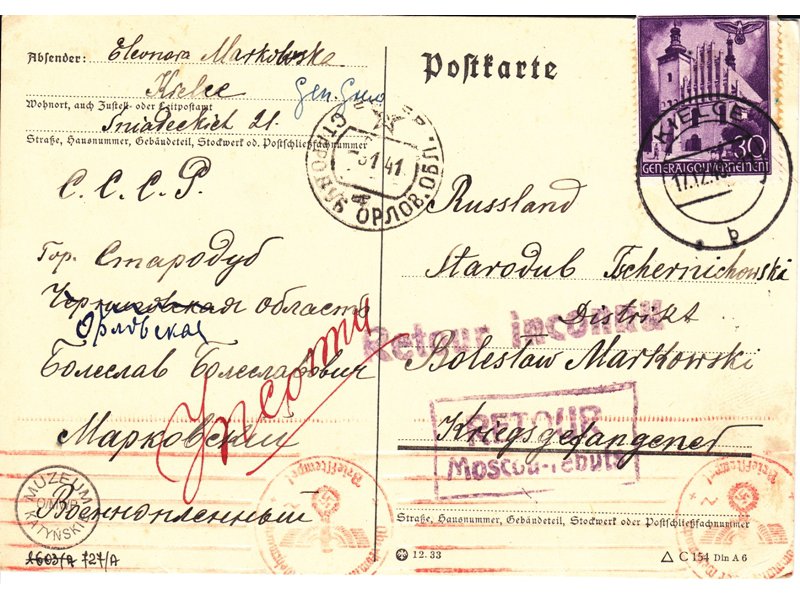 Absender: Eleonora Markowska
Kielce Gen. Guv
Wohnort, auch Zustell- oder Leitpostamt
Śniadeckich 21.
Straße, Hausnummer, Gebäudeteil, Stockwerk od. Postschließfachnummer
Postkarte
30
GENERALGOUVERNEMENT
KIELCE
17.12.
b
СТАРОДУБ ОРЛОВ. ОБЛ.
1 41
С.С.С.Р.
Гор. Стародуб
Черниговская область
Орловская
Болеслав Болеславович
Марковский
Военнопленный
Russland
Starodub Tschernichowski
Distrikt
Bolesław Markowski
Kriegsgefangener
Retour inconnu
RETOUR
Moscou-rebuts
MUZEUM
KATYŃSKIE
1603/A 727/A
Straße, Hausnummer, Gebäudeteil, Stockwerk oder Postschließfachnummer
12.33
C 154 Din A 6